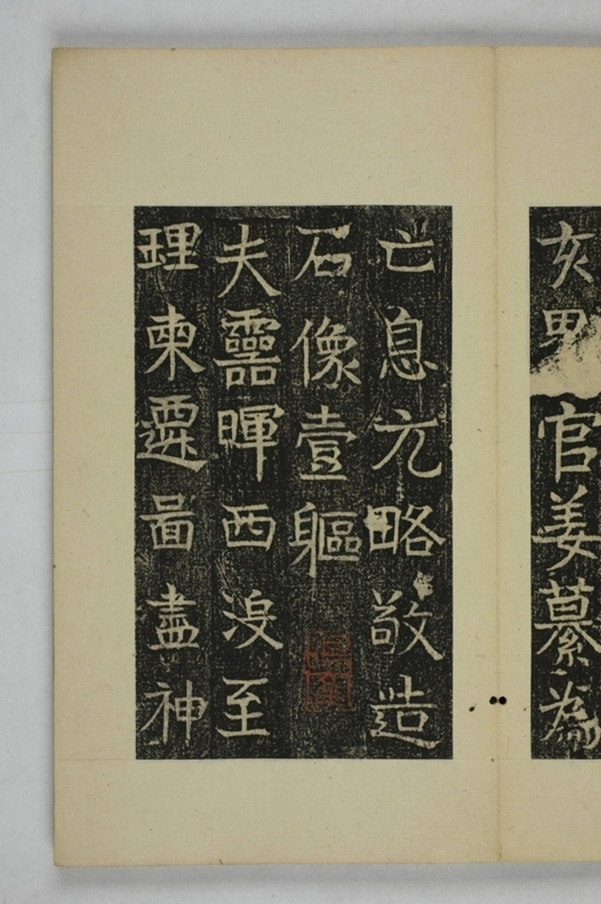 亥男官姜纂為
亡息元略敬造
石像壹軀
夫靈暉西沒至
理東遷啚盡神